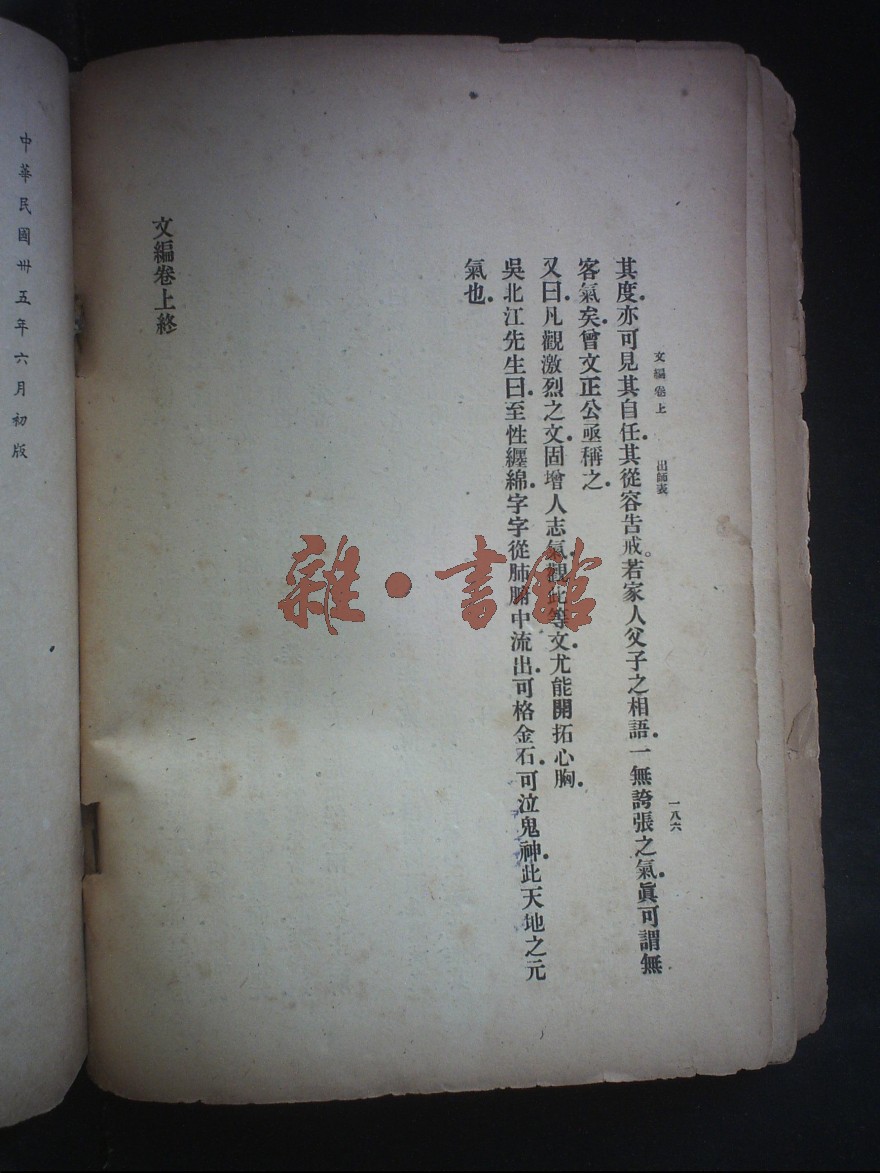 文編卷上 出師表 一八六
其度.亦可見其自任.其從容告戒。若家人父子之相語.一無誇張之氣.眞可謂無
客氣矣.曾文正公亟稱之.
又曰.凡觀激烈之文.固增人志氣.觀此等文.尤能開拓心胸.
吳北江先生曰.至性纒綿.字字從肺腑中流出.可格金石.可泣鬼神.此天地之元
氣也.
文編卷上終
中華民國卅五年六月初版
雜·書館